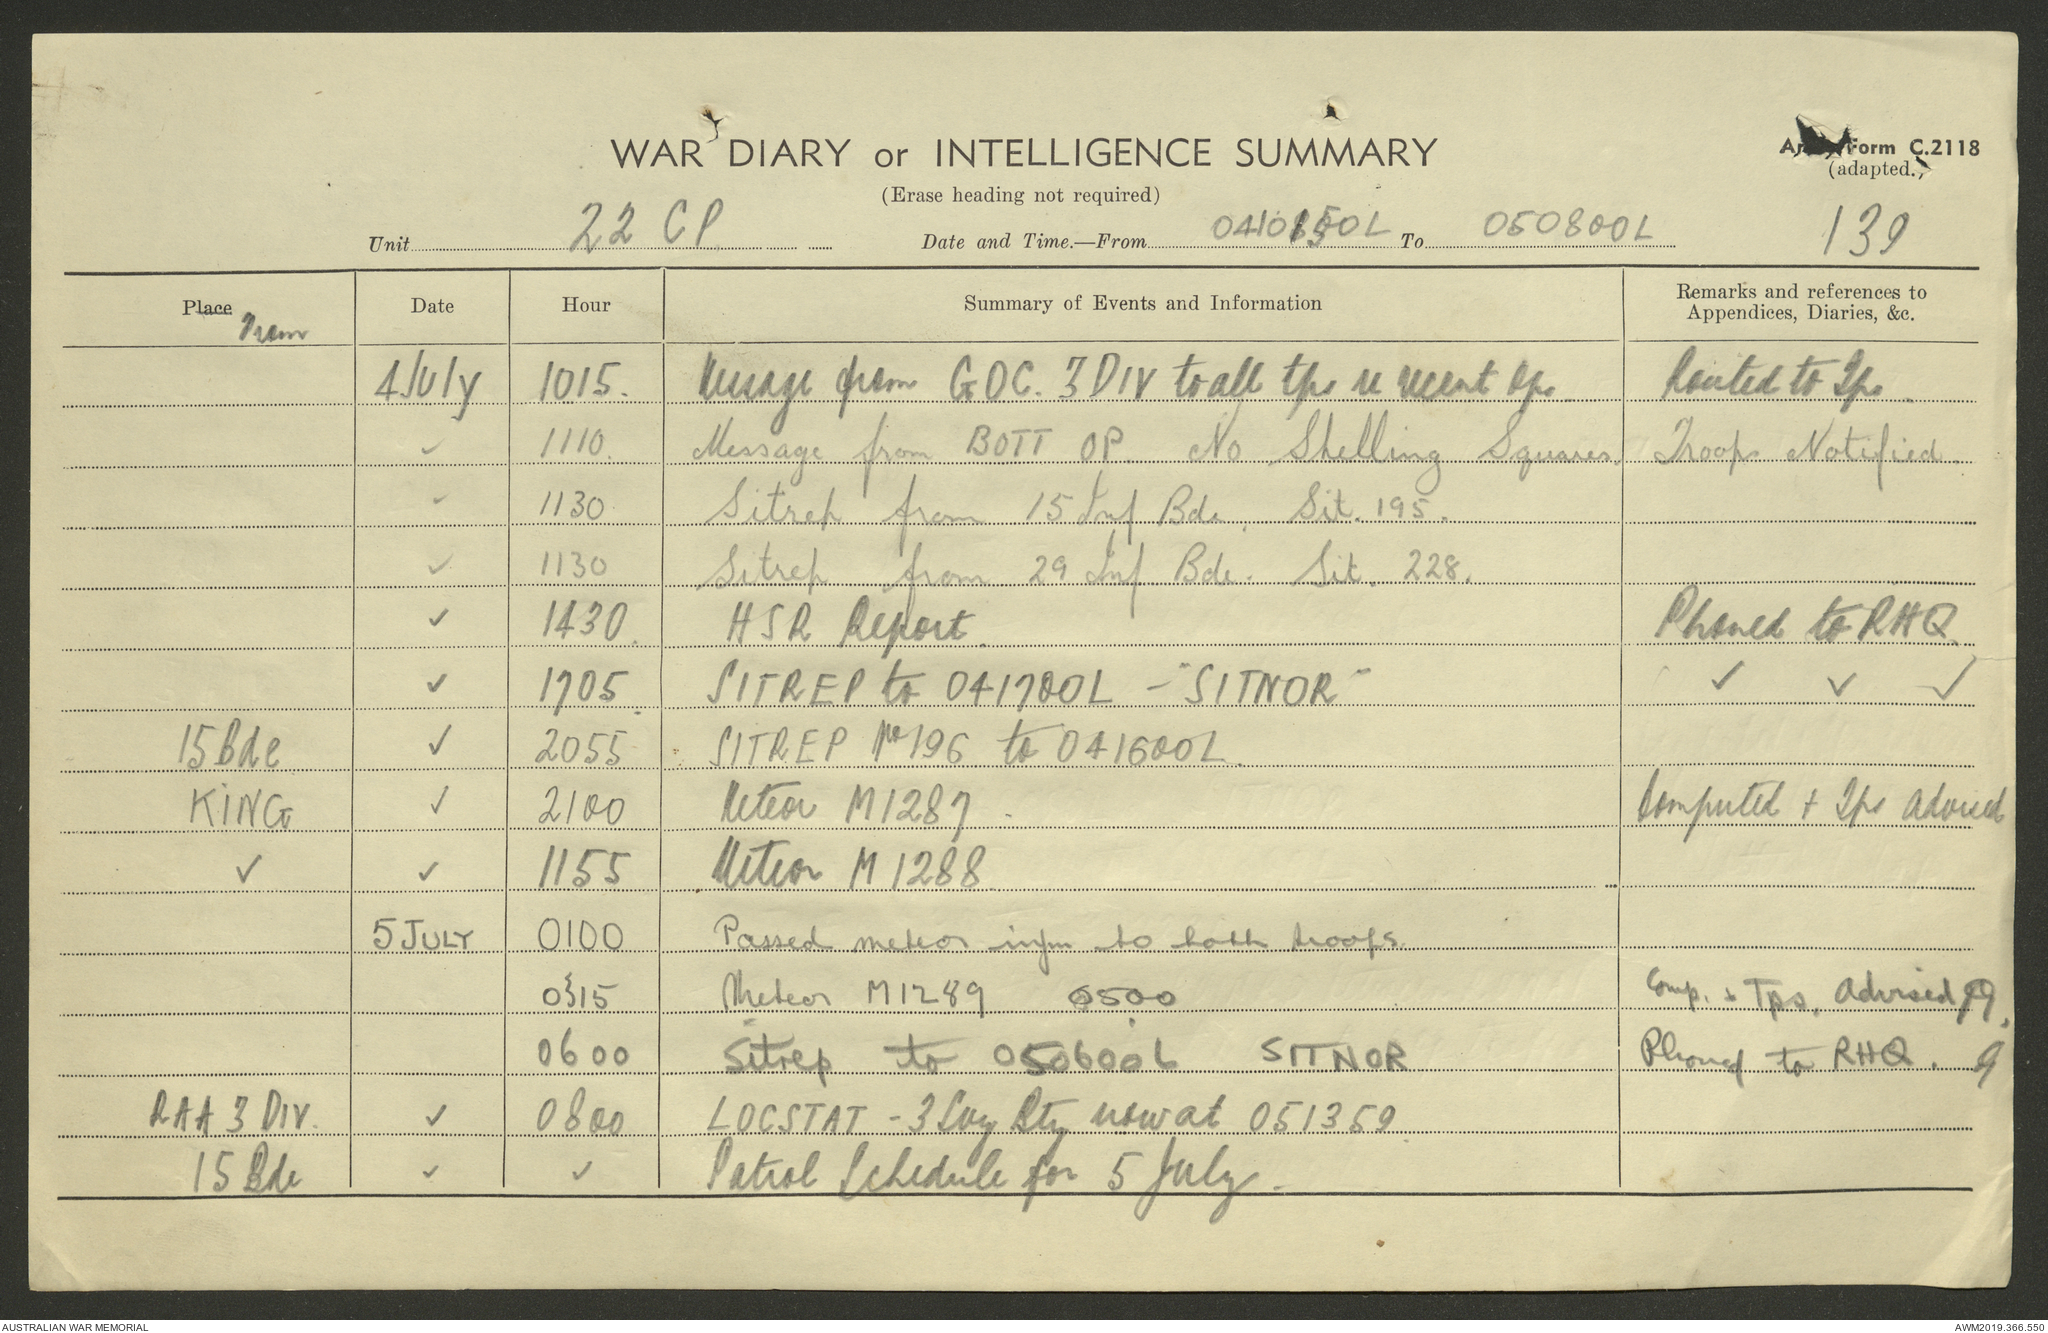 WAR DIARY or INTELLIGENCE SUMMARY
Form C.2118
(Erase heading not required)
(adapted.)
Unit 22 CP. Date and Time.—From 041015L To 050800L 139
Place From Date Hour Summary of Events and Information Remarks and references to Appendices, Diaries, &c.
4 July 1015. Message from GOC. 3 DIV to all tps re recent ops. Routed to Tps.
✓ 1110. Message from BOTT OP. No Shelling Squares. Troops Notified.
✓ 1130 Sitrep from 15 Inf Bde. Sit. 195.
✓ 1130 Sitrep from 29 Inf Bde. Sit. 228.
✓ 1430. HSR Report. Phoned to RHQ.
✓ 1705. SITREP to 041700L - "SITNOR" ✓ ✓ ✓
15 Bde ✓ 2055 SITREP No 196 to 041600L.
KING ✓ 2100 Meteor M1287 - Computed + Tps advised
✓ ✓ 1155 Meteor M1288
5 JULY 0100 Passed meteor infm to both troops.
0315 Meteor M1289 0500 Comp. + Tps. Advised
0600 Sitrep to 050600L SITNOR Phoned to RHQ.
RAA 3 DIV. ✓ 0800 LOCSTAT - 3 Svy Bty now at 051359
15 Bde ✓ ✓ Patrol Schedule for 5 July.
AUSTRALIAN WAR MEMORIAL AWM2019.366.550